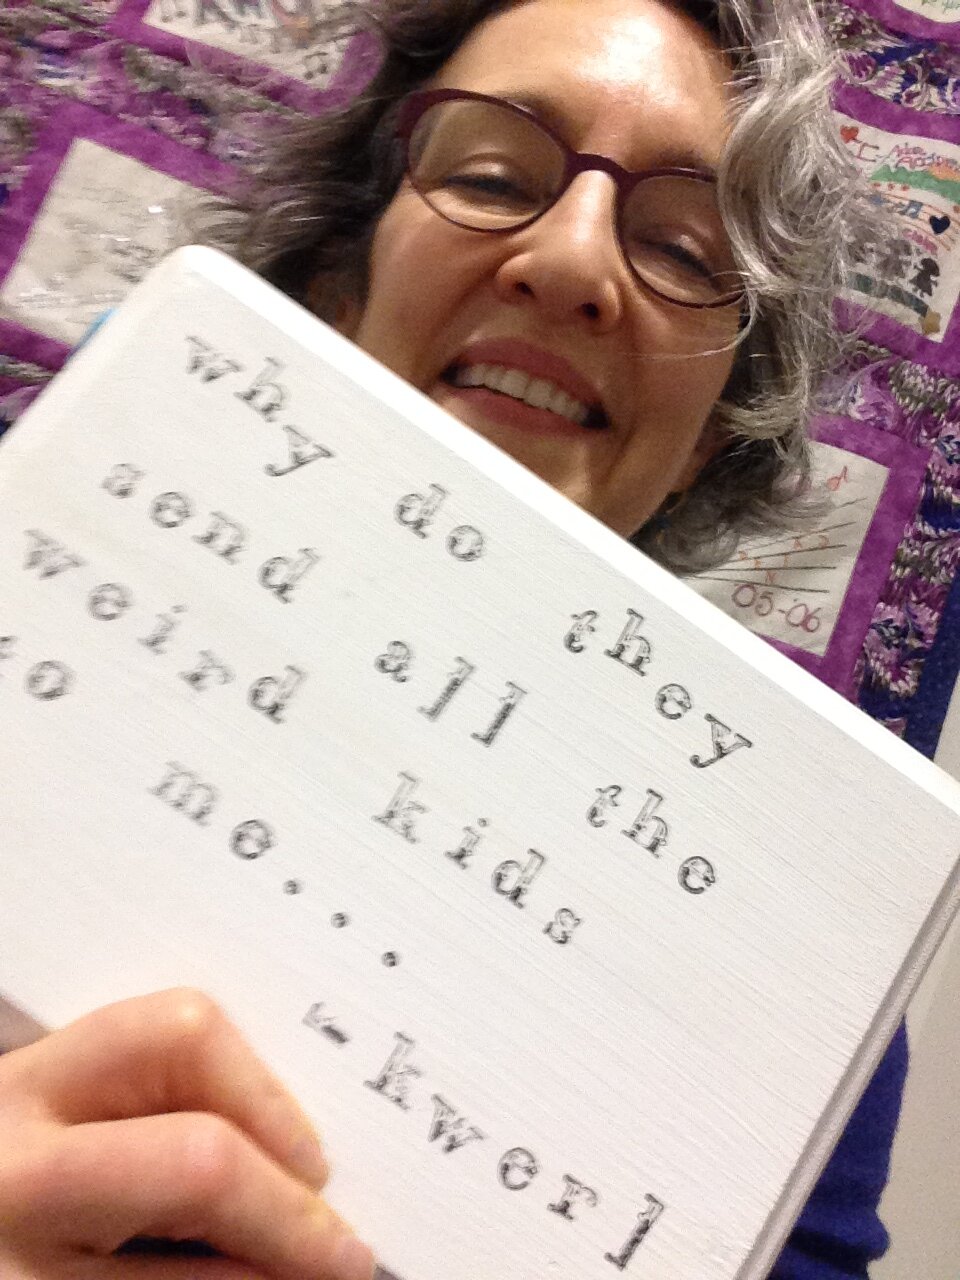 why do they
send all the
weird kids
to me...
- kwerl
'05-'06